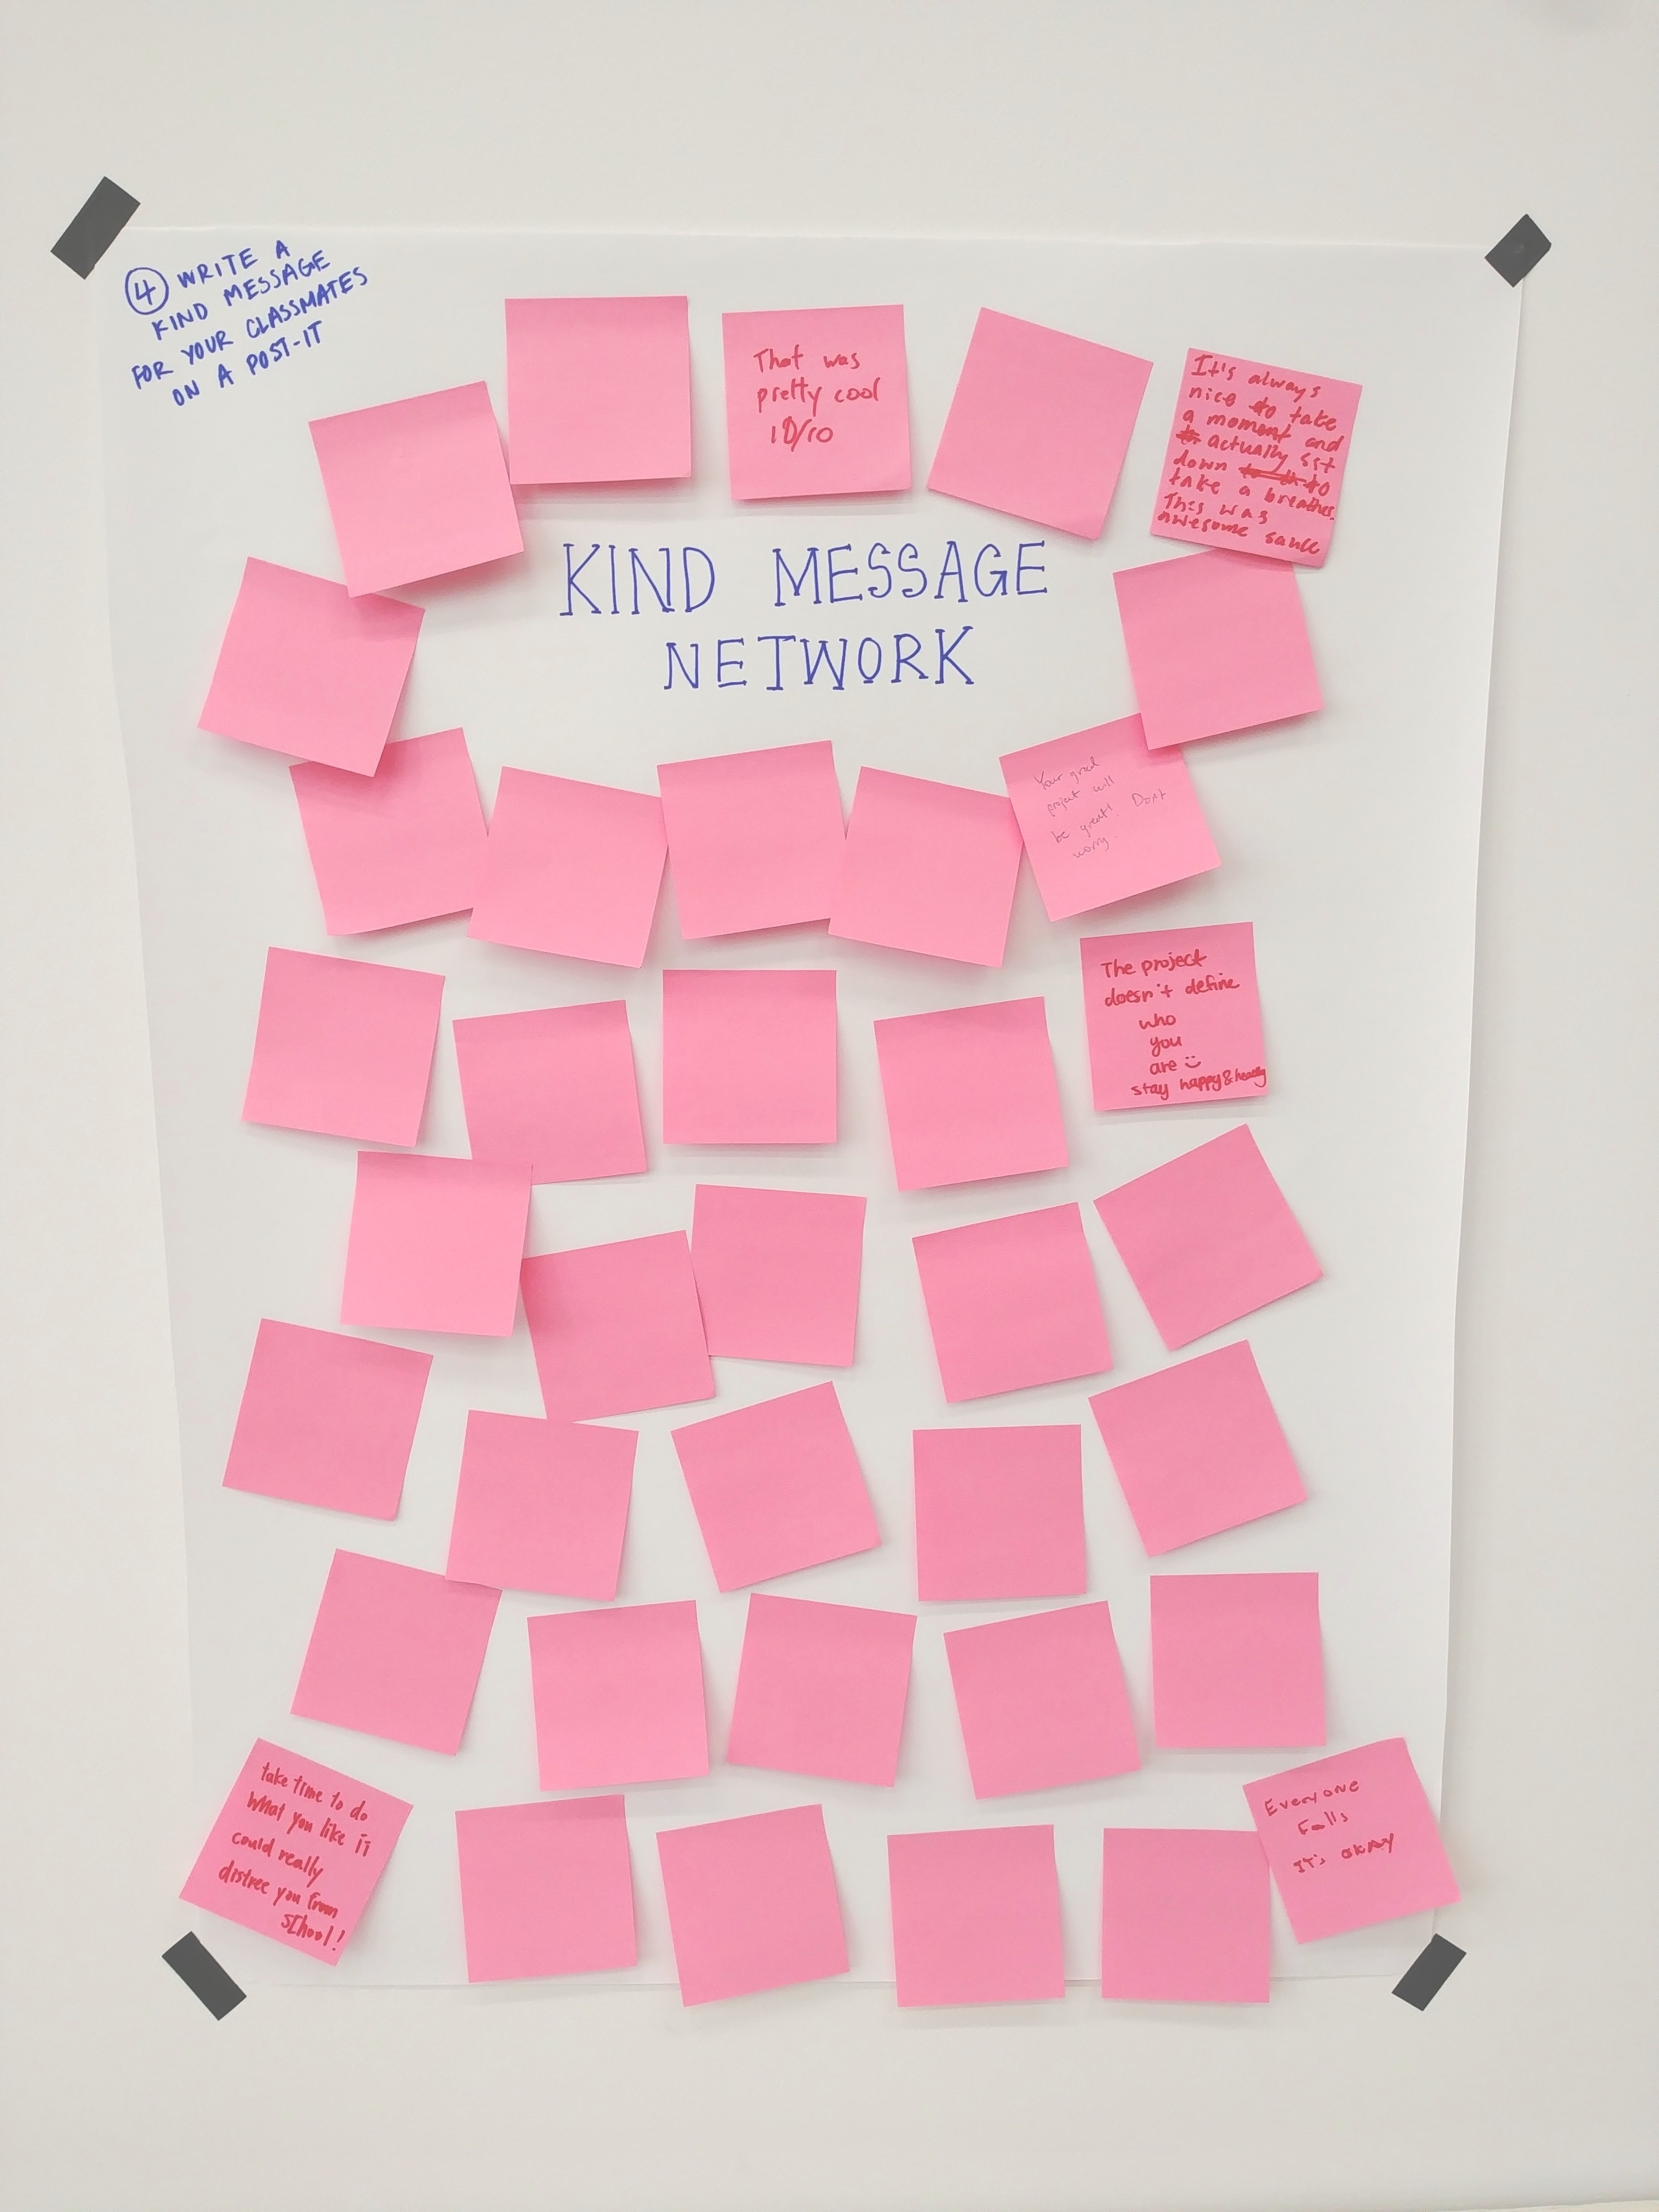 ④ WRITE A
KIND MESSAGE
FOR YOUR CLASSMATES
ON A POST-IT
That was
pretty cool
10/10
It's always
nice to take
a moment and
actually sit
down to
take a breather.
This was
awesome sauce
KIND MESSAGE
NETWORK
Your grad
project will
be great! Dont
worry.
The project
doesn't define
who
you
are :)
stay happy & healthy
take time to do
what you like it
could really
distree you from
school!
Everyone
Falls
IT's okay